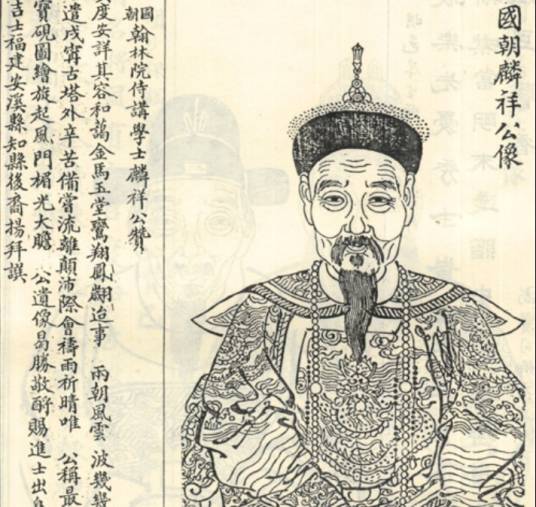 國朝麟祥公像
國朝翰林院侍講學士麟祥公贊
度安詳其容和藹金馬玉堂鸞翔鳳翽迨事 兩朝風雲 波幾
遣戍寧古塔外辛苦備嘗流離顛沛際會禱雨祈晴唯 公稱最
寶硯圖繪旋起風門楣光大瞻 公遺像曷勝敬酹 賜進士出
吉士福建安溪縣知縣後裔揚拜譔